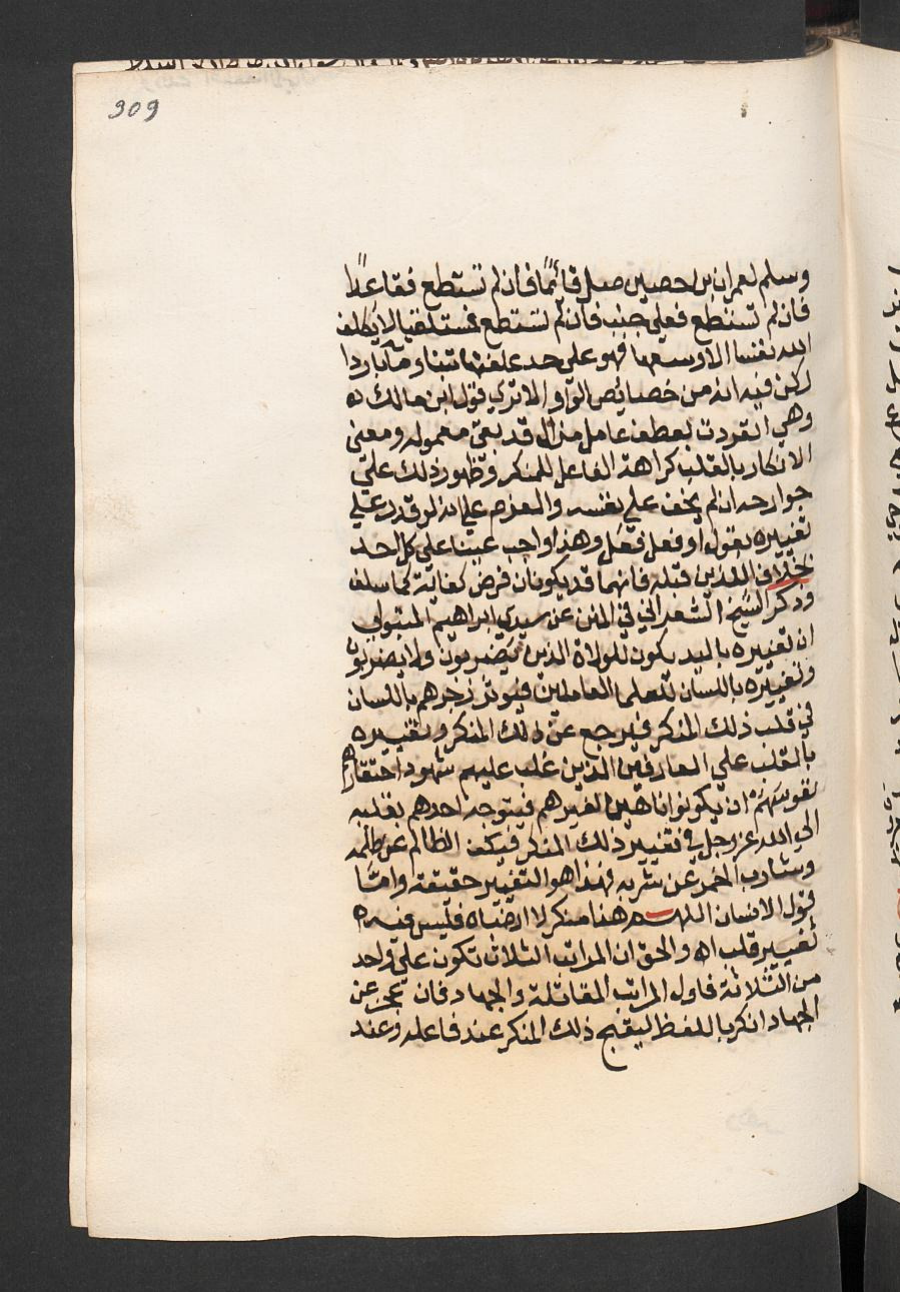 309
وسلم لعمران بن حصين صل قائمًا فان لم تستطع فقاعدًا
فان لم تستطع فعلى جنب فان لم تستطع فمستلقيا لا يكلف
الله نفسا الا وسعها فهو على حد علفتها تبنا وماء باردا
لكن فيه انه من خصايص الواو الا تري قول ابن مالك
وهي انفردت بعطف عامل مزال قد بقي معموله ومعنى
الانكار بالقلب كراهة الفاعل للمنكر وظهور ذلك على
جوارحه ان لم يخف على نفسه والعزم على انه لو قدر على
تغييره بقول او فعل فعل وهذا واجب عينا على كل احد
بخلاف اللذين قبله فانهما قد يكونان فرض كفاية كما سلف
وذكر الشيخ الشعراني في المنن عن سيدي ابراهيم المتبولي
ان تغييره باليد يكون للولاة الذين يضربون ولا يضربون
وتغييره باللسان للعلما العاملين فيوثر زجرهم باللسان
في قلب ذلك المنكر فيرجع عن ذلك المنكر وتغييره
بالقلب على العارفين الذين غلب عليهم شهود احتقار
نفوسهم ان يكونوا ناهين لغيرهم فيتوجه احدهم بقلبه
الى الله عز وجل في تغيير ذلك المنكر فيكف الظالم عن ظلمه
وشارب الخمر عن شربه فهذا هو التغيير حقيقة واما
قول الانسان اللهم هذا منكر لا ارضاه فليس فيه
تغيير قلب اه والحق ان المراتب الثلاث تكون على واحد
من الثلاثة فاول المراتب المقاتلة والجهاد فان عجز عن
الجهاد انكر باللفظ ليقبح ذلك المنكر عند فاعله وعند